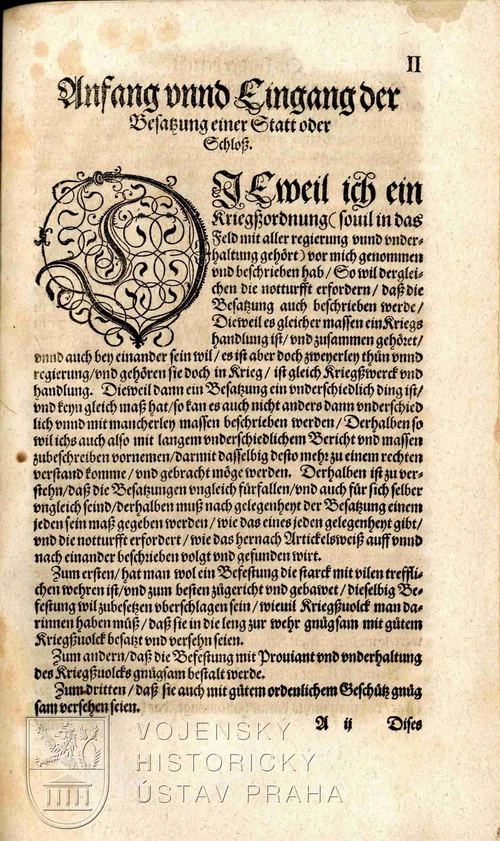 II
Anfang vnnd Eingang der
Besatzung einer Statt oder
Schloß.
DIEweil ich ein
Kriegßordnung (souil in das
Feld mit aller regierung vnnd vnder-
haltung gehört) vor mich genommen
vnd beschrieben hab / So wil derglei-
chen die notturfft erfordern / daß die
Besatzung auch beschrieben werde /
Dieweil es gleicher massen ein Kriegs
handlung ist / vnd zusammen gehöret /
vnnd auch bey einander sein wil / es ist aber doch zweyerley thůn vnnd
regierung / vnd gehören sie doch in Krieg / ist gleich Kriegßwerck vnd
handlung. Dieweil dann ein Besatzung ein vnderschiedlich ding ist /
vnd keyn gleich maß hat / so kan es auch nicht anders dann vnderschied
lich vnnd mit mancherley massen beschrieben werden / Derhalben so
wil ichs auch also mit langem vnderschiedlichem Bericht vnd massen
zubeschreiben vornemen / darmit dasselbig desto mehr zu einem rechten
verstand komme / vnd gebracht möge werden. Derhalben ist zu ver-
stehn / daß die Besatzungen vngleich fürfallen / vnd auch für sich selber
vngleich seind / derhalben muß nach gelegenheyt der Besatzung einem
jeden sein maß gegeben werden / wie das eines jeden gelegenheyt gibt /
vnd die notturfft erfordert / wie das hernach Artickelsweiß auff vnnd
nach einander beschrieben volgt vnd gefunden wirt.
Zum ersten / hat man wol ein Befestung die starck mit vilen treffli-
chen wehren ist / vnd zum besten zůgericht vnd gebawet / dieselbig Be-
festung wil zubesetzen vberschlagen sein / wieuil Kriegßuolck man da-
rinnen haben můß / daß sie in die leng zur wehr gnůgsam mit gůtem
Kriegßuolck besatzt vnd versehn seien.
Zum andern / daß die Befestung mit Prouiant vnd vnderhaltung
des Kriegßuolcks gnůgsam bestalt werde.
Zum dritten / daß sie auch mit gůtem ordenlichem Geschütz gnůg
sam versehen seien.
A ij Dises
VOJENSKÝ
HISTORICKÝ
ÚSTAV PRAHA